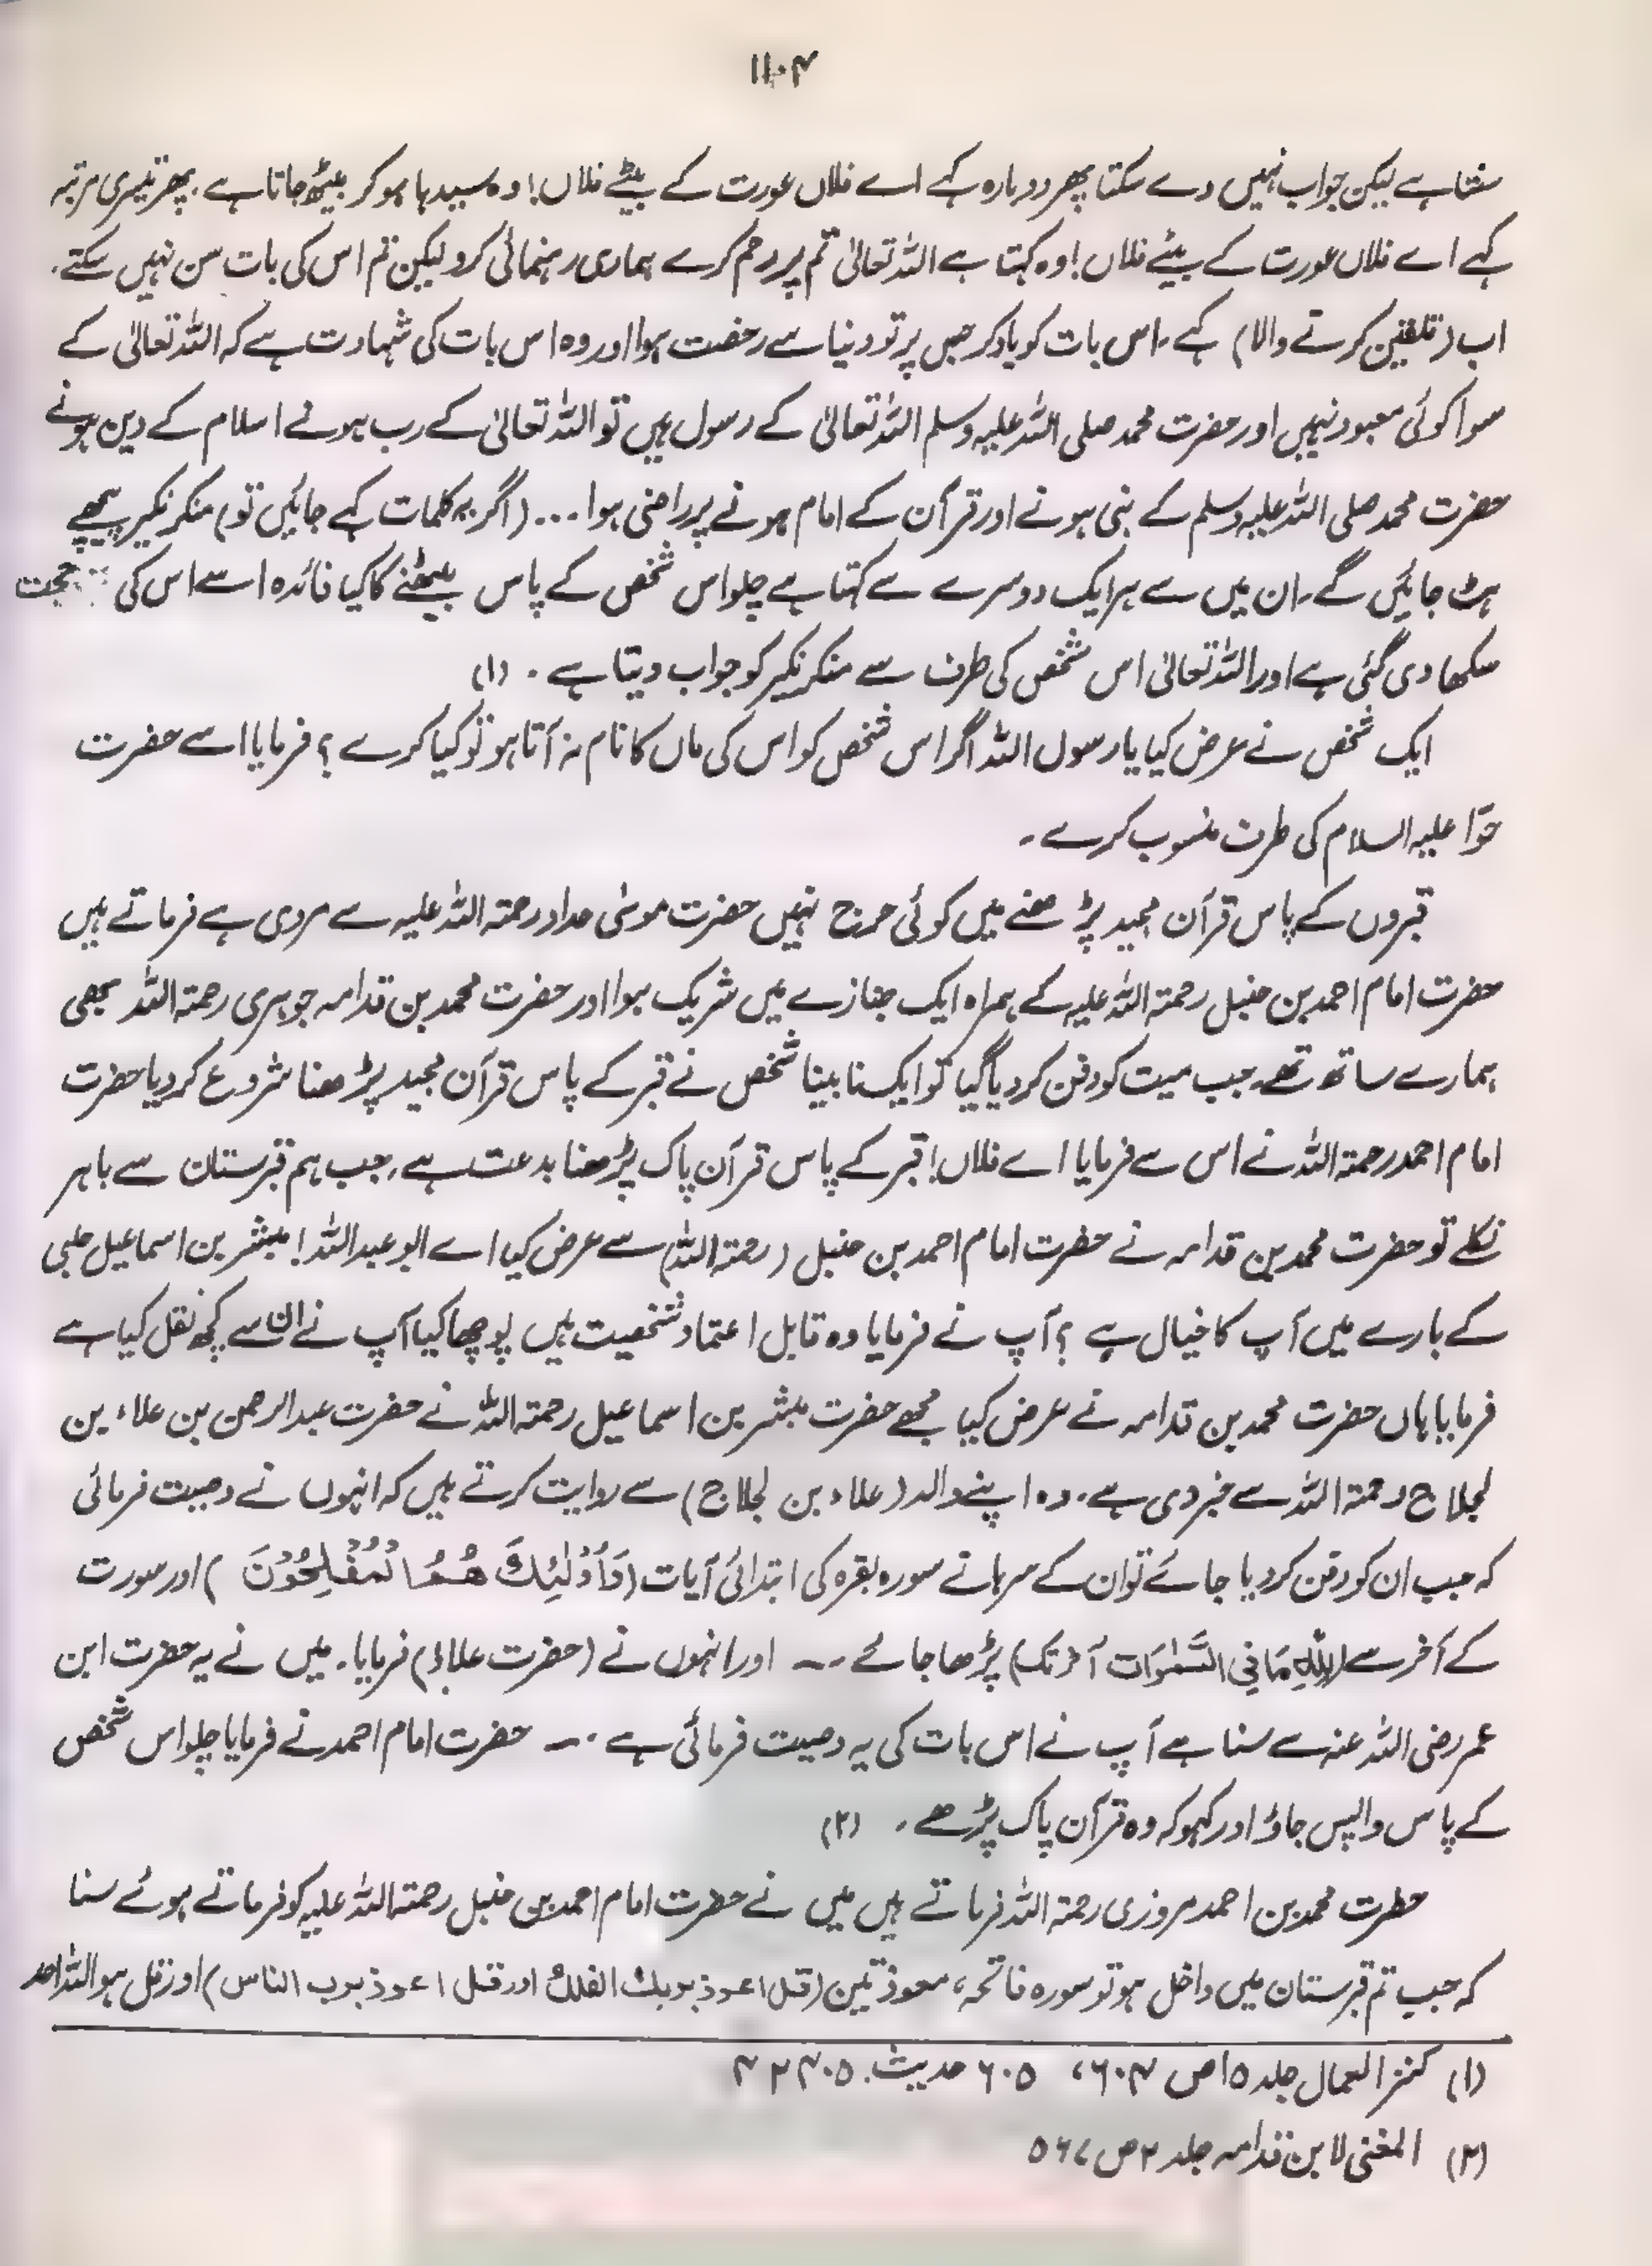 ۱۱۰۴
سنتا ہے لیکن جواب نہیں دے سکتا پھر دوبارہ کہے اے فلاں عورت کے بیٹے فلاں! وہ سیدھا ہو کر بیٹھ جاتا ہے۔ پھر تیسری مرتبہ
کہے اے فلاں عورت کے بیٹے فلاں! وہ کہتا ہے اللہ تعالیٰ تم پر رحم کرے ہماری رہنمائی کرو لیکن تم اس کی بات سن نہیں سکتے۔
اب (تلقین کرنے والا) کہے۔ اس بات کو یاد کر جس پر تو دنیا سے رخصت ہوا اور وہ اس بات کی شہادت ہے کہ اللہ تعالیٰ کے
سوا کوئی معبود نہیں اور حضرت محمد صلی اللہ علیہ وسلم اللہ تعالیٰ کے رسول ہیں تو اللہ تعالیٰ کے رب ہونے اسلام کے دین ہونے
حضرت محمد صلی اللہ علیہ وسلم کے نبی ہونے اور قرآن کے امام ہونے پر راضی ہوا ... (اگر یہ کلمات کہے جائیں تو) منکر نکیر پیچھے
ہٹ جائیں گے۔ ان میں سے ہر ایک دوسرے سے کہتا ہے چلو اس شخص کے پاس بیٹھنے کا کیا فائدہ اسے اس کی حجت
سکھا دی گئی ہے اور اللہ تعالیٰ اس شخص کی طرف سے منکر نکیر کو جواب دیتا ہے۔ (۱)
ایک شخص نے عرض کیا یا رسول اللہ اگر اس شخص کو اس کی ماں کا نام نہ آتا ہو تو کیا کرے؟ فرمایا اسے حضرت
حوّا علیہ السلام کی طرف منسوب کرے۔
قبروں کے پاس قرآن مجید پڑھنے میں کوئی حرج نہیں حضرت موسیٰ حداد رحمۃ اللہ علیہ سے مروی ہے فرماتے ہیں
حضرت امام احمد بن حنبل رحمۃ اللہ علیہ کے ہمراہ ایک جنازے میں شریک ہوا اور حضرت محمد بن قدامہ جوہری رحمۃ اللہ بھی
ہمارے ساتھ تھے۔ جب میت کو دفن کر دیا گیا تو ایک نابینا شخص نے قبر کے پاس قرآن مجید پڑھنا شروع کر دیا حضرت
امام احمد رحمۃ اللہ نے اس سے فرمایا اے فلاں! قبر کے پاس قرآن پاک پڑھنا بدعت ہے، جب ہم قبرستان سے باہر
نکلے تو حضرت محمد بن قدامہ نے حضرت امام احمد بن حنبل (رحمۃ اللہ) سے عرض کیا اے ابو عبداللہ! مبشر بن اسماعیل حلبی
کے بارے میں آپ کا خیال ہے؟ آپ نے فرمایا وہ قابل اعتماد شخصیت ہیں پوچھا کیا آپ نے ان سے کچھ نقل کیا ہے
فرمایا ہاں حضرت محمد بن قدامہ نے عرض کیا مجھے حضرت مبشر بن اسماعیل رحمۃ اللہ نے حضرت عبدالرحمن بن علاء بن
لجلاج رحمۃ اللہ سے خبر دی ہے۔ وہ اپنے والد (علاء بن لجلاج) سے روایت کرتے ہیں کہ انہوں نے وصیت فرمائی
کہ جب ان کو دفن کر دیا جائے تو ان کے سرہانے سورہ بقرہ کی ابتدائی آیات (وَاُوْلٰئِکَ ھُمُ الْمُفْلِحُوْنَ) اور سورت
کے آخر سے (لِلّٰهِ مَا فِی السَّمٰوَات آخر تک) پڑھا جائے ۔۔ اور انہوں نے (حضرت علاء) فرمایا۔ میں نے یہ حضرت ابن
عمر رضی اللہ عنہ سے سنا ہے آپ نے اس بات کی یہ وصیت فرمائی ہے ۔۔ حضرت امام احمد نے فرمایا چلو اس شخص
کے پاس واپس جاؤ اور کہو کہ وہ قرآن پاک پڑھے۔ (۲)
حضرت محمد بن احمد مروزی رحمۃ اللہ فرماتے ہیں میں نے حضرت امام احمد بن حنبل رحمۃ اللہ علیہ کو فرماتے ہوئے سنا
کہ جب تم قبرستان میں داخل ہو تو سورہ فاتحہ، معوذتین (قل اعوذ بربک الفلق اور قل اعوذ برب الناس) اور قل ہو اللہ احد
(۱) کنز العمال جلد ۱۵ ص ۶۰۴، ۶۰۵ حدیث ۴۲۴۰۵
(۲) المغنی لابن قدامہ جلد ۲ ص ۵۶۷